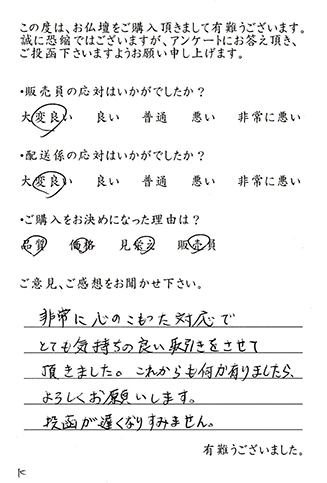 この度は、お仏壇をご購入頂きまして有難うございます。
誠に恐縮ではございますが、アンケートにお答え頂き、
ご投函下さいますようお願い申し上げます。
・販売員の応対はいかがでしたか？
大変良い 良い 普通 悪い 非常に悪い
・配送係の応対はいかがでしたか？
大変良い 良い 普通 悪い 非常に悪い
・ご購入をお決めになった理由は？
品質 価格 見栄え 販売員
ご意見、ご感想をお聞かせ下さい。
非常に心のこもった対応で
とても気持ちの良い取引きをさせて
頂きました。これからも何か有りましたら、
よろしくお願いします。
投函が遅くなりすみません。
有難うございました。